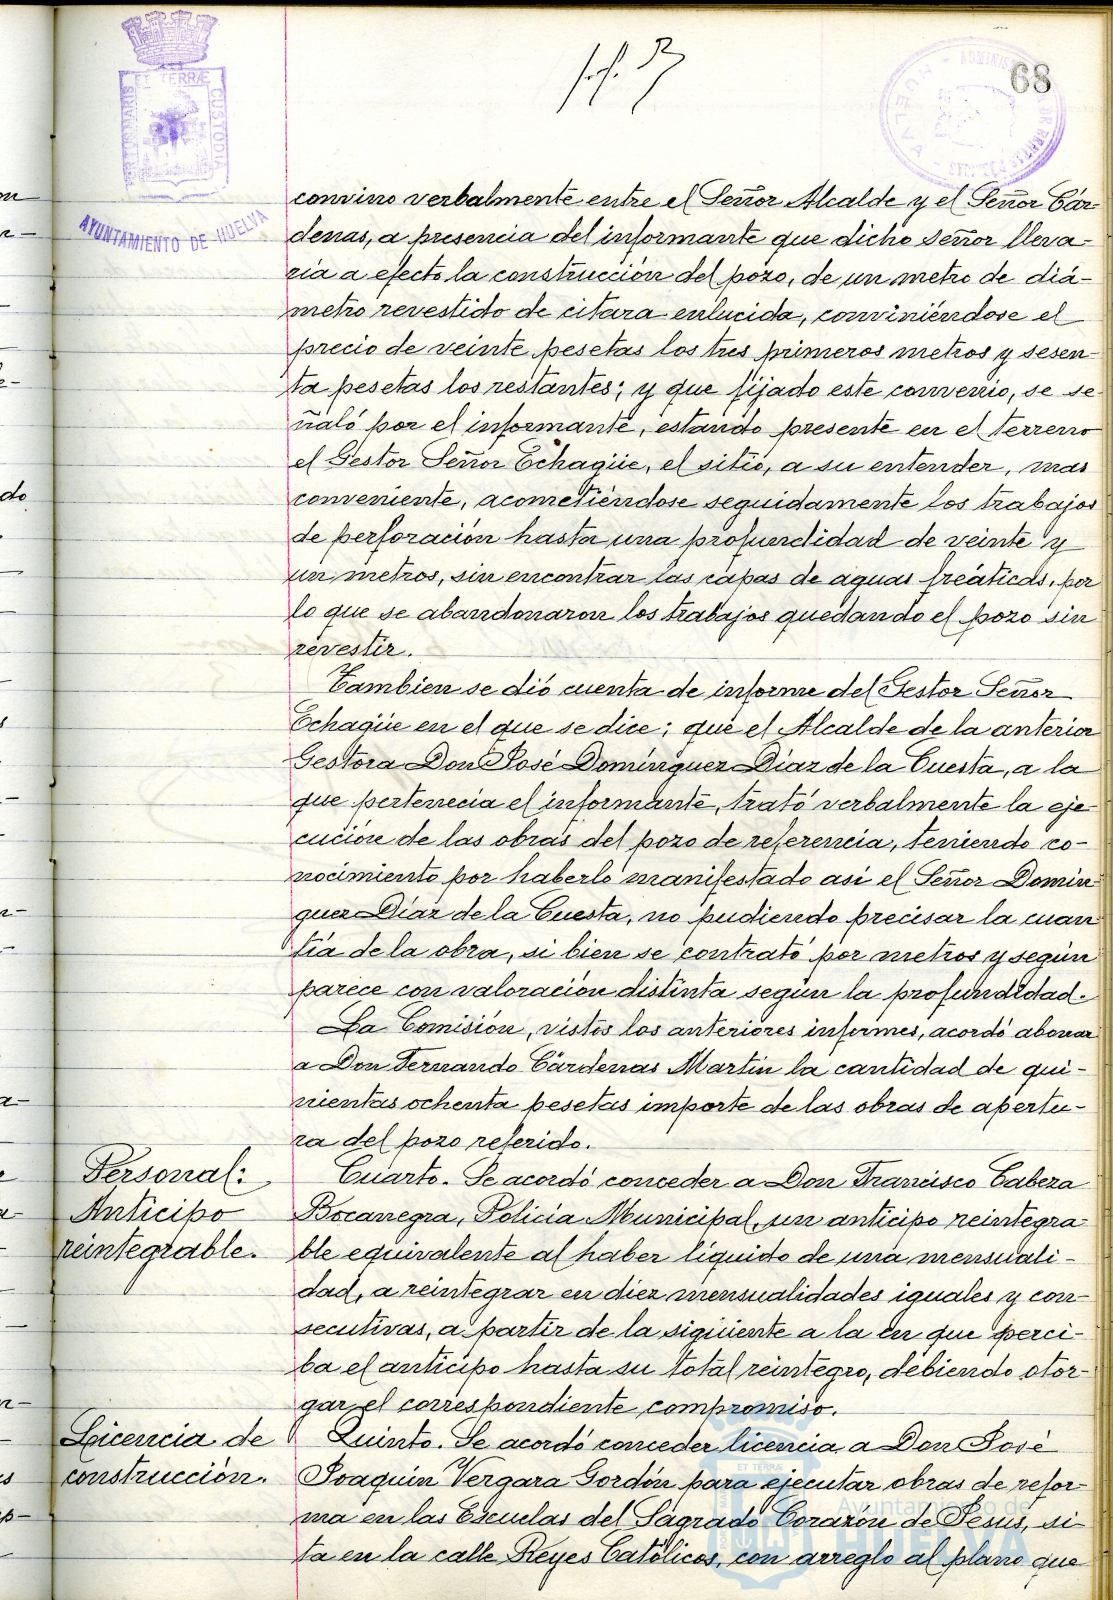 68
PORTUS MARIS ET TERRÆ CUSTODIA
AYUNTAMIENTO DE HUELVA
convino verbalmente entre el Señor Alcalde y el Señor Cár-
denas, a presencia del informante que dicho señor lleva-
ría a efecto la construcción del pozo, de un metro de diá-
metro revestido de citara enlucida, conviniéndose el
precio de veinte pesetas los tres primeros metros y sesen-
ta pesetas los restantes; y que fijado este convenio, se se-
ñaló por el informante, estando presente en el terreno
el Gestor Señor Echagüe, el sitio, a su entender, mas
conveniente, acometiéndose seguidamente los trabajos
de perforación hasta una profundidad de veinte y
un metros, sin encontrar las capas de aguas freáticas, por
lo que se abandonaron los trabajos quedando el pozo sin
revestir.
Tambien se dió cuenta de informe del Gestor Señor
Echagüe en el que se dice; que el Alcalde de la anterior
Gestora Don José Domínguez Díaz de la Cuesta, a la
que pertenecia el informante, trató verbalmente la eje-
cución de las obras del pozo de referencia, teniendo co-
nocimiento por haberlo manifestado asi el Señor Domín-
guez Díaz de la Cuesta, no pudiendo precisar la cuan-
tía de la obra, si bien se contrató por metros y según
parece con valoración distinta según la profundidad.
La Comisión, vistos los anteriores informes, acordó abonar
a Don Fernando Cárdenas Martín la cantidad de qui-
nientas ochenta pesetas importe de las obras de apertu-
ra del pozo referido.
Personal:
Anticipo
reintegrable.
Cuarto. Se acordó conceder a Don Francisco Cabeza
Bocanegra, Policía Municipal, un anticipo reintegra-
ble equivalente al haber líquido de una mensuali-
dad, a reintegrar en diez mensualidades iguales y con-
secutivas, a partir de la siguiente a la en que perci-
ba el anticipo hasta su total reintegro, debiendo otor-
gar el correspondiente compromiso.
Licencia de
construcción.
Quinto. Se acordó conceder licencia a Don José
Joaquín Vergara Gordón para ejecutar obras de refor-
ma en las Escuelas del Sagrado Corazón de Jesús, si-
ta en la calle Reyes Católicos, con arreglo al plano que
Ayuntamiento de
HUELVA